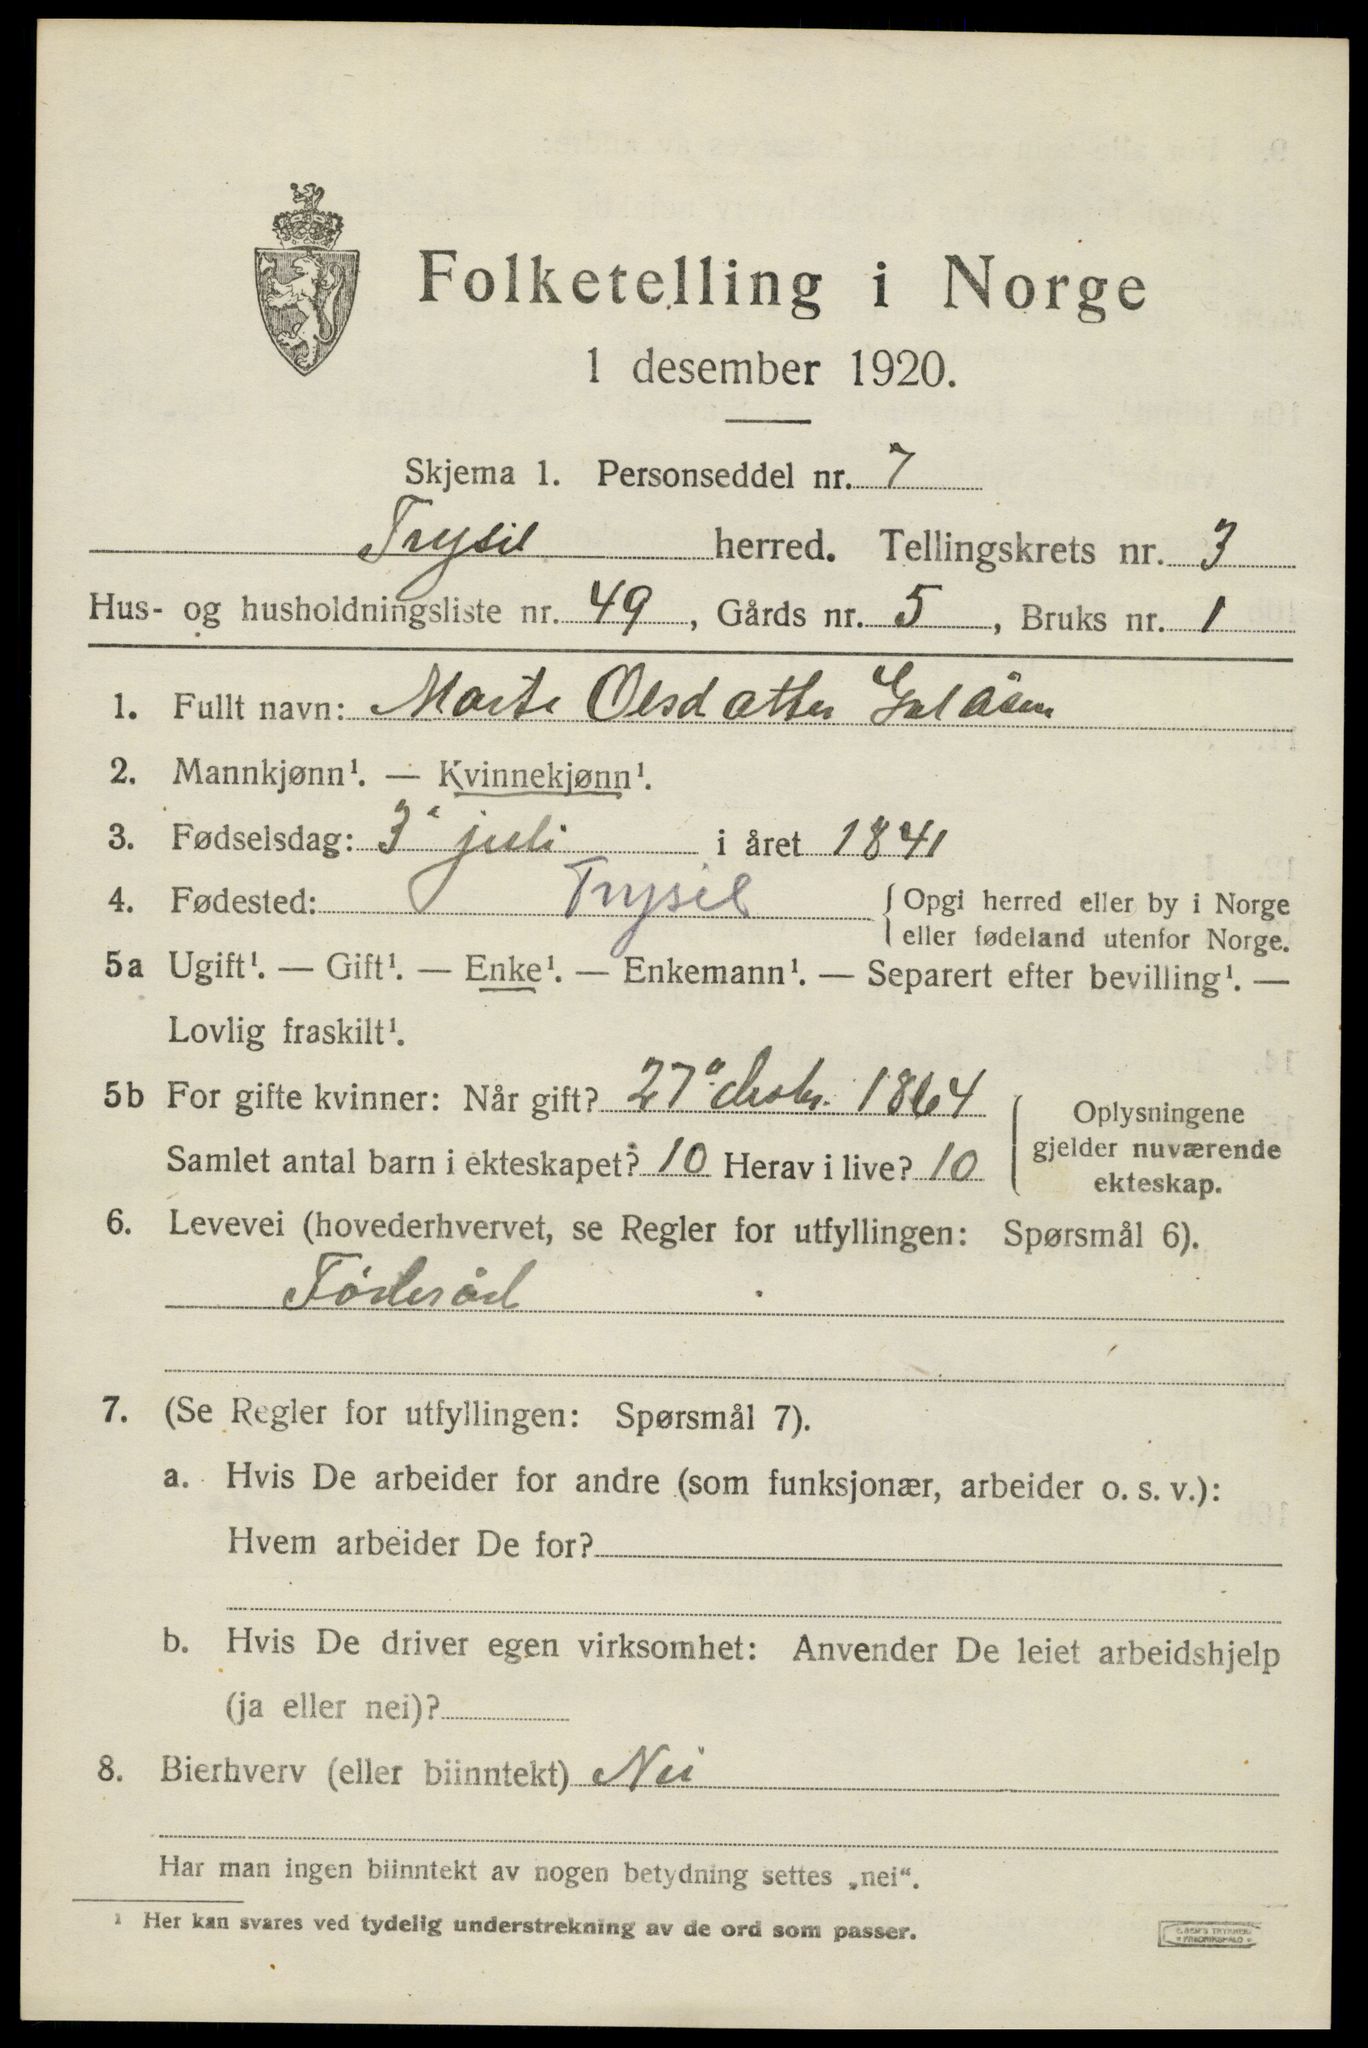 Folketelling i Norge
1 desember 1920.
Skjema 1. Personseddel nr. 7
Trysil herred. Tellingskrets nr. 3
Hus- og husholdningsliste nr. 49, Gårds nr. 5, Bruks nr. 1
1. Fullt navn: Marte Olsdatter Galåsen
2. Mannkjønn¹. — Kvinnekjønn¹.
3. Fødselsdag: 3 juli i året 1841
4. Fødested: Trysil { Opgi herred eller by i Norge
eller fødeland utenfor Norge.
5a Ugift¹. — Gift¹. — Enke¹. — Enkemann¹. — Separert efter bevilling¹. —
Lovlig fraskilt¹.
5b For gifte kvinner: Når gift? 27 1864
Samlet antal barn i ekteskapet? 10 Herav i live? 10
{ Oplysningene
gjelder nuværende
ekteskap.
6. Levevei (hovederhvervet, se Regler for utfyllingen: Spørsmål 6).
Föderåd
7. (Se Regler for utfyllingen: Spørsmål 7).
a. Hvis De arbeider for andre (som funksjonær, arbeider o. s. v.):
Hvem arbeider De for?
b. Hvis De driver egen virksomhet: Anvender De leiet arbeidshjelp
(ja eller nei)?
8. Bierhverv (eller biinntekt) Nei
Har man ingen biinntekt av nogen betydning settes „nei“.
¹ Her kan svares ved tydelig understrekning av de ord som passer.